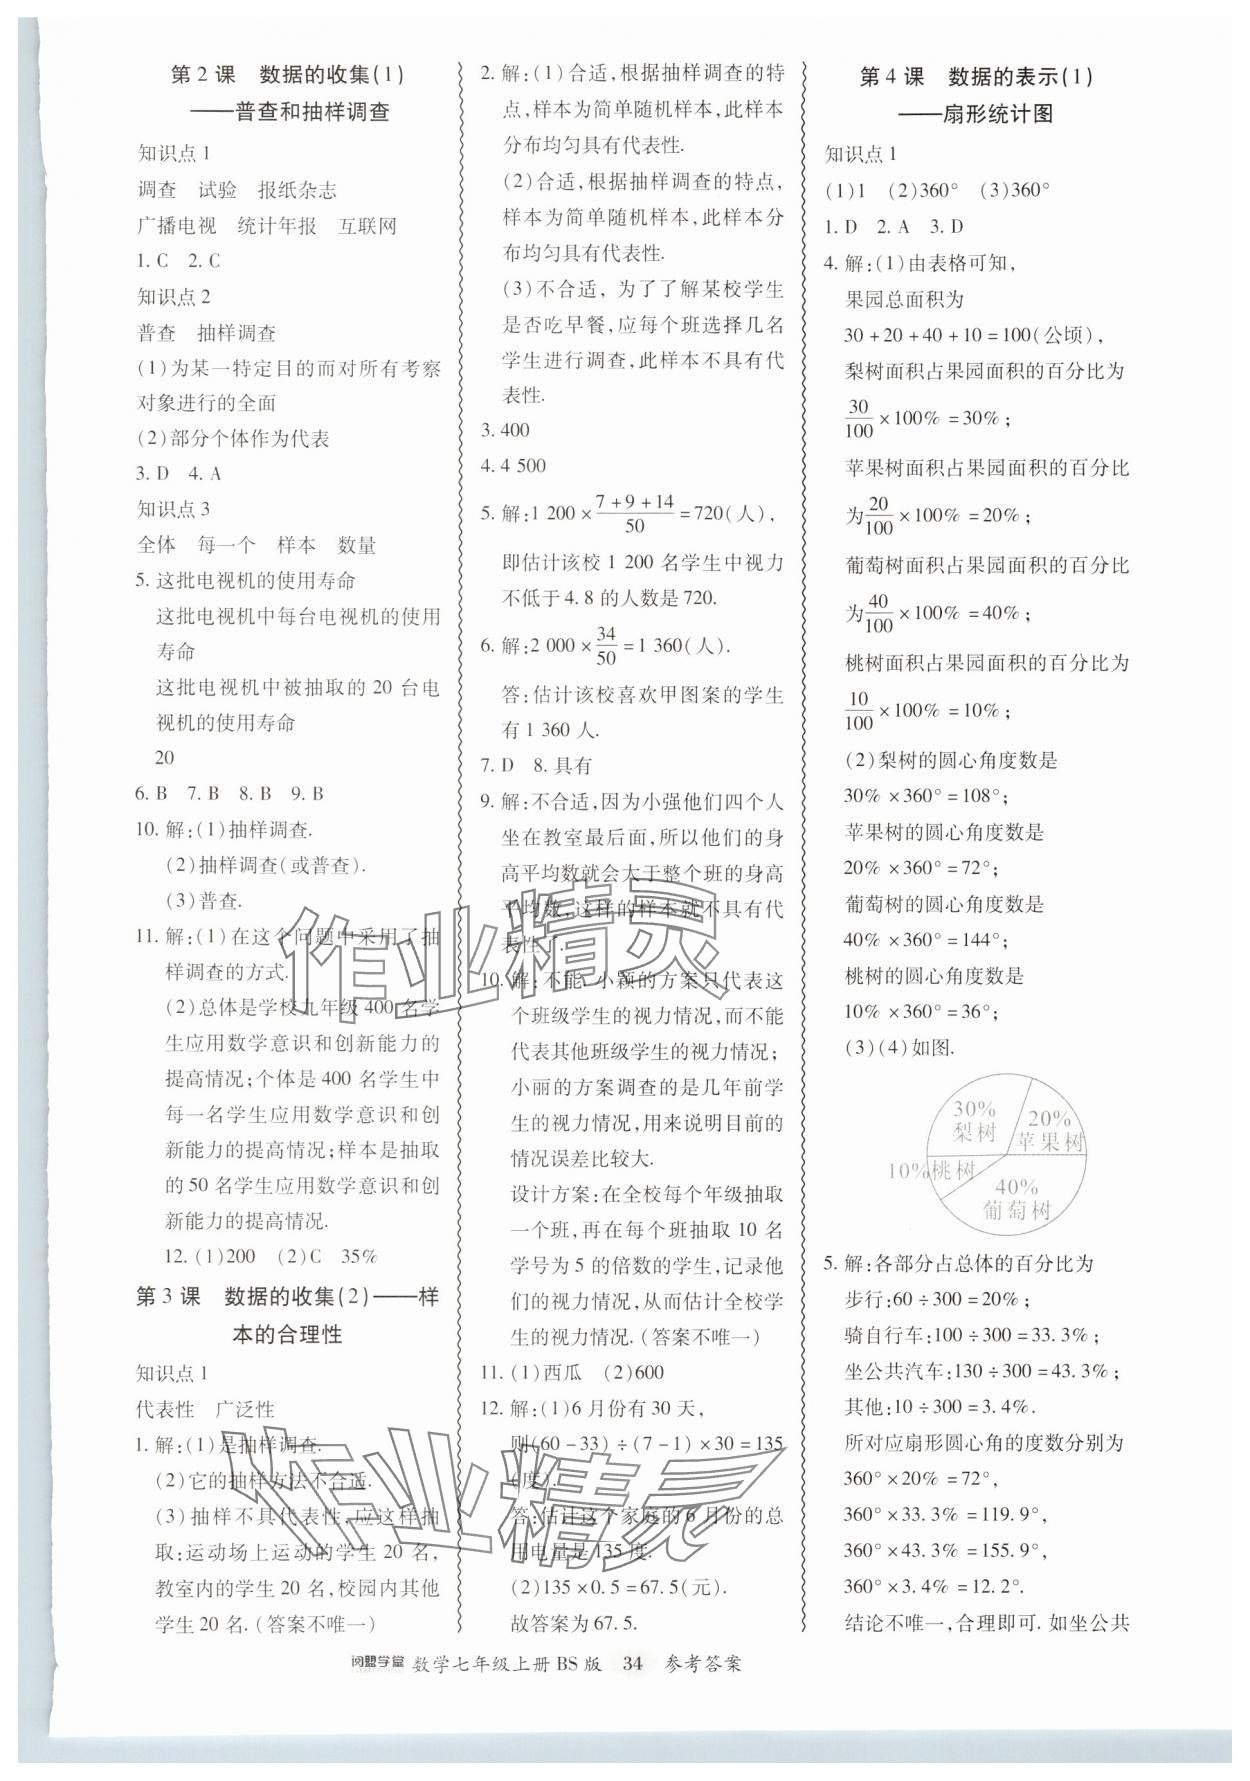 第2课　数据的收集(1)
——普查和抽样调查
知识点1
调查　试验　报纸杂志
广播电视　统计年报　互联网
1. C　2. C
知识点2
普查　抽样调查
(1)为某一特定目的而对所有考察
对象进行的全面
(2)部分个体作为代表
3. D　4. A
知识点3
全体　每一个　样本　数量
5. 这批电视机的使用寿命
这批电视机中每台电视机的使用
寿命
这批电视机中被抽取的20台电
视机的使用寿命
20
6. B　7. B　8. B　9. B
10. 解:(1)抽样调查.
(2)抽样调查(或普查).
(3)普查.
11. 解:(1)在这个问题中采用了抽
样调查的方式.
(2)总体是学校九年级400名学
生应用数学意识和创新能力的
提高情况;个体是400名学生中
每一名学生应用数学意识和创
新能力的提高情况;样本是抽取
的50名学生应用数学意识和创
新能力的提高情况.
12. (1)200　(2)C　35%
第3课　数据的收集(2)——样
本的合理性
知识点1
代表性　广泛性
1. 解:(1)是抽样调查.
(2)它的抽样方法不合适.
(3)抽样不具代表性,应这样抽
取:运动场上运动的学生20名,
教室内的学生20名,校园内其他
学生20名.(答案不唯一)
2. 解:(1)合适,根据抽样调查的特
点,样本为简单随机样本,此样本
分布均匀具有代表性.
(2)合适,根据抽样调查的特点,
样本为简单随机样本,此样本分
布均匀具有代表性.
(3)不合适,为了了解某校学生
是否吃早餐,应每个班选择几名
学生进行调查,此样本不具有代
表性.
3. 400
4. 4 500
5. 解:1 200×(7+9+14)/50=720(人),
即估计该校1 200名学生中视力
不低于4.8的人数是720.
6. 解:2 000×34/50=1 360(人).
答:估计该校喜欢甲图案的学生
有1 360人.
7. D　8. 具有
9. 解:不合适,因为小强他们四个人
坐在教室最后面,所以他们的身
高平均数就会大于整个班的身高
平均数,这样的样本就不具有代
表性了.
10. 解:不能.小颖的方案只代表这
个班级学生的视力情况,而不能
代表其他班级学生的视力情况;
小丽的方案调查的是几年前学
生的视力情况,用来说明目前的
情况误差比较大.
设计方案:在全校每个年级抽取
一个班,再在每个班抽取10名
学号为5的倍数的学生,记录他
们的视力情况,从而估计全校学
生的视力情况.(答案不唯一)
11. (1)西瓜　(2)600
12. 解:(1)6月份有30天,
则(60-33)÷(7-1)×30=135
(度).
答:估计这个家庭的6月份的总
用电量是135度.
(2)135×0.5=67.5(元).
故答案为67.5.
第4课　数据的表示(1)
——扇形统计图
知识点1
(1)1　(2)360°　(3)360°
1. D　2. A　3. D
4. 解:(1)由表格可知,
果园总面积为
30+20+40+10=100(公顷),
梨树面积占果园面积的百分比为
30/100×100%=30%;
苹果树面积占果园面积的百分比
为20/100×100%=20%;
葡萄树面积占果园面积的百分比
为40/100×100%=40%;
桃树面积占果园面积的百分比为
10/100×100%=10%;
(2)梨树的圆心角度数是
30%×360°=108°;
苹果树的圆心角度数是
20%×360°=72°;
葡萄树的圆心角度数是
40%×360°=144°;
桃树的圆心角度数是
10%×360°=36°;
(3)(4)如图.
30%
梨树
20%
苹果树
10%桃树
40%
葡萄树
5. 解:各部分占总体的百分比为
步行:60÷300=20%;
骑自行车:100÷300=33.3%;
坐公共汽车:130÷300=43.3%;
其他:10÷300=3.4%.
所对应扇形圆心角的度数分别为
360°×20%=72°,
360°×33.3%=119.9°,
360°×43.3%=155.9°,
360°×3.4%=12.2°.
结论不唯一,合理即可.如坐公共
阅盟学堂 数学七年级上册BS版　34　参考答案
作业精灵
作业精灵